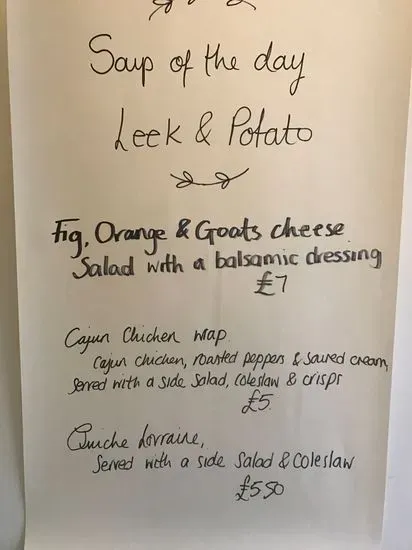 Soup of the day
Leek & Potato
Fig, Orange & Goats cheese
Salad with a balsamic dressing
£7
Cajun Chicken wrap.
Cajun chicken, roasted peppers & soured cream,
served with a side salad, coleslaw & crisps
£5.
Quiche Lorraine,
Served with a side salad & coleslaw
£5.50